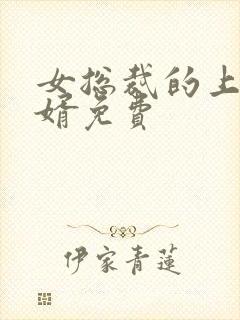 女总裁的上
婿免费
伊家青莲